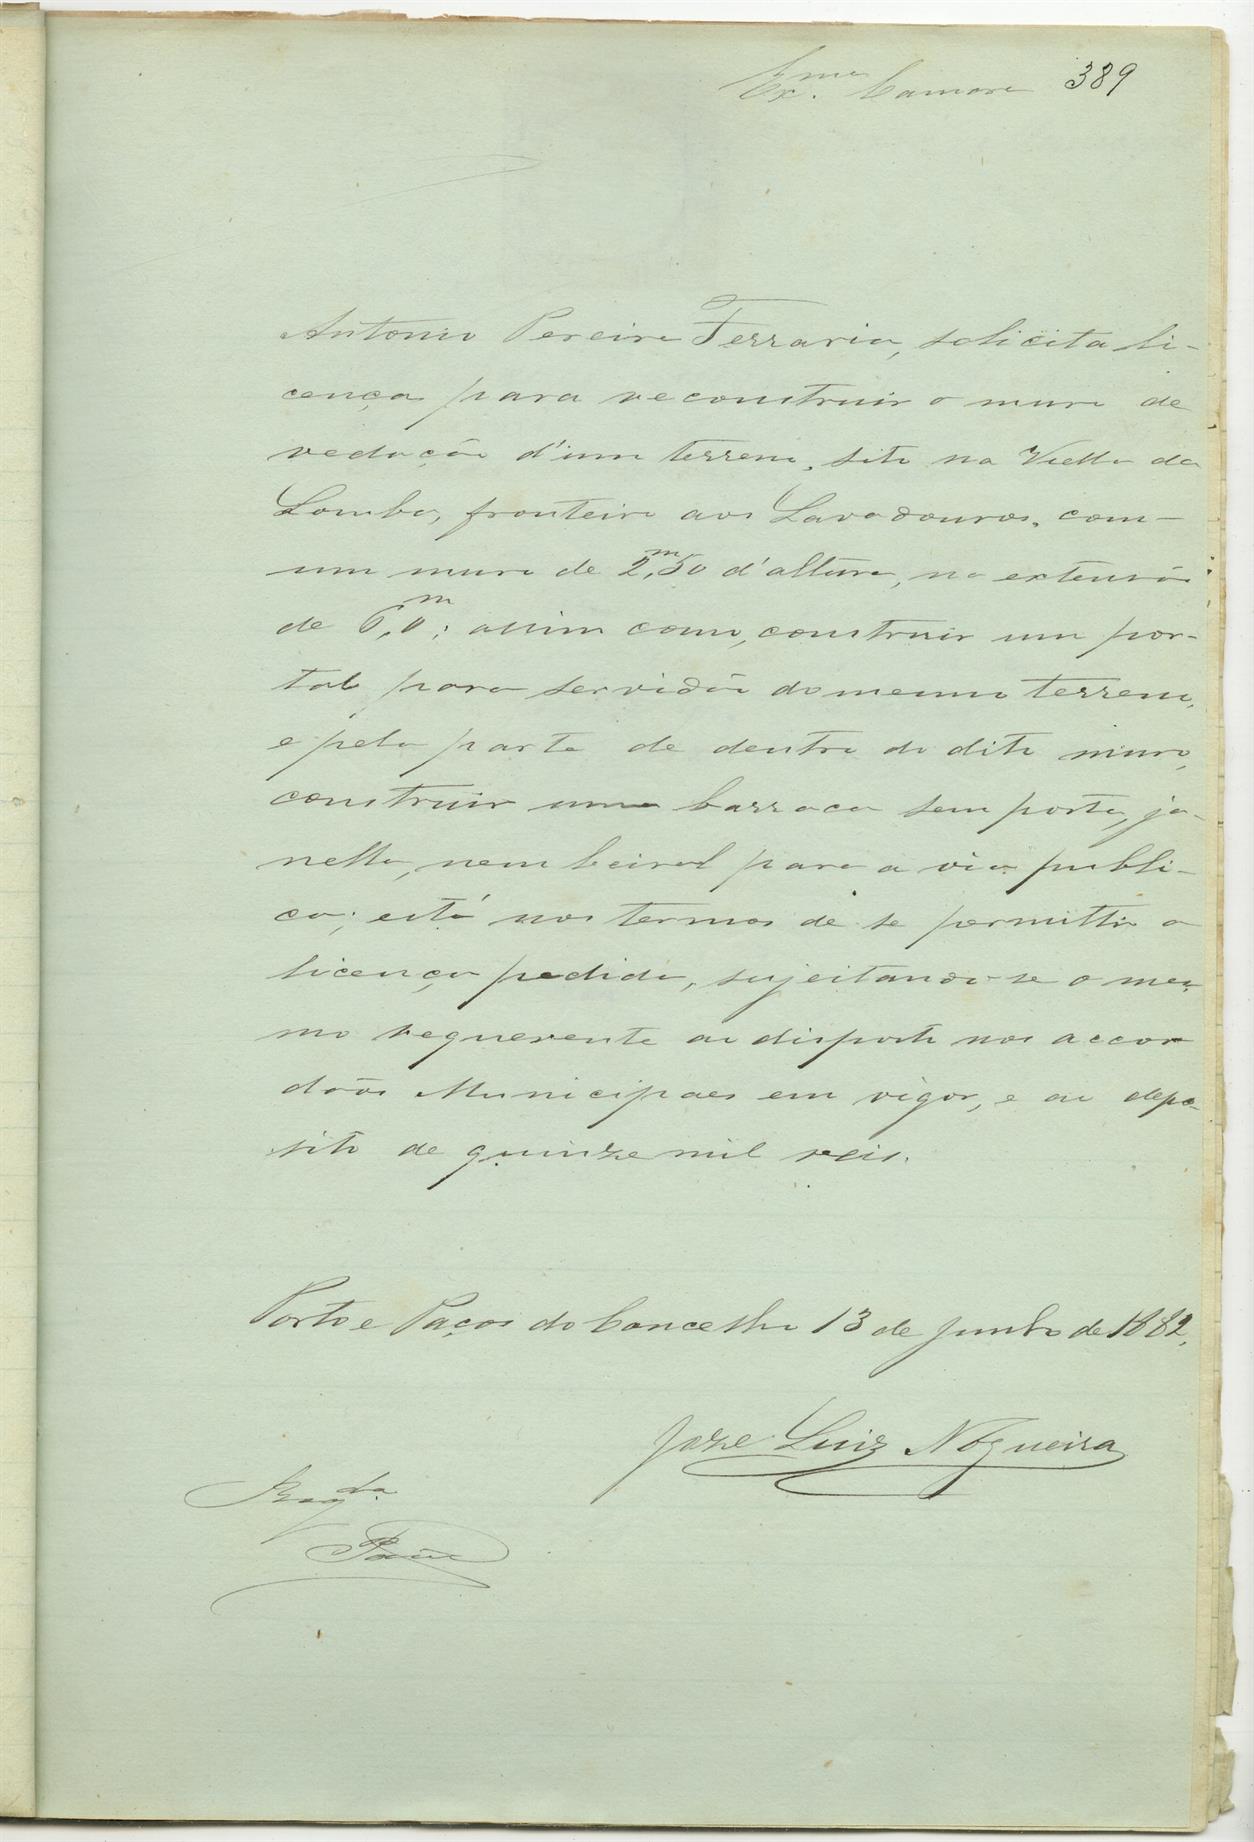 Ex.ma Camara 389
Antonio Pereira Ferraria, solicita li-
cença para reconstruir o muro de
vedação d'um terreno, sito na Viella da
Lomba, fronteiro aos Lavadouros, com-
um muro de 2,m50 d'altura, na extensão
de 6,m0; assim como, construir um por-
tal para servidão do mesmo terreno,
e pela parte de dentro do dito muro,
construir uma barraca sem porta, ja-
nella, nem beiral para a via publi-
ca; está nos termos de se permittir a
licença pedida, sujeitando-se o mes-
mo requerente ao disposto nos accor
dãos Municipaes em vigor, e ao depo-
sito de quinze mil reis.
Porto e Paços do Concelho 13 de Junho de 1882.
Joze Luiz Nogueira